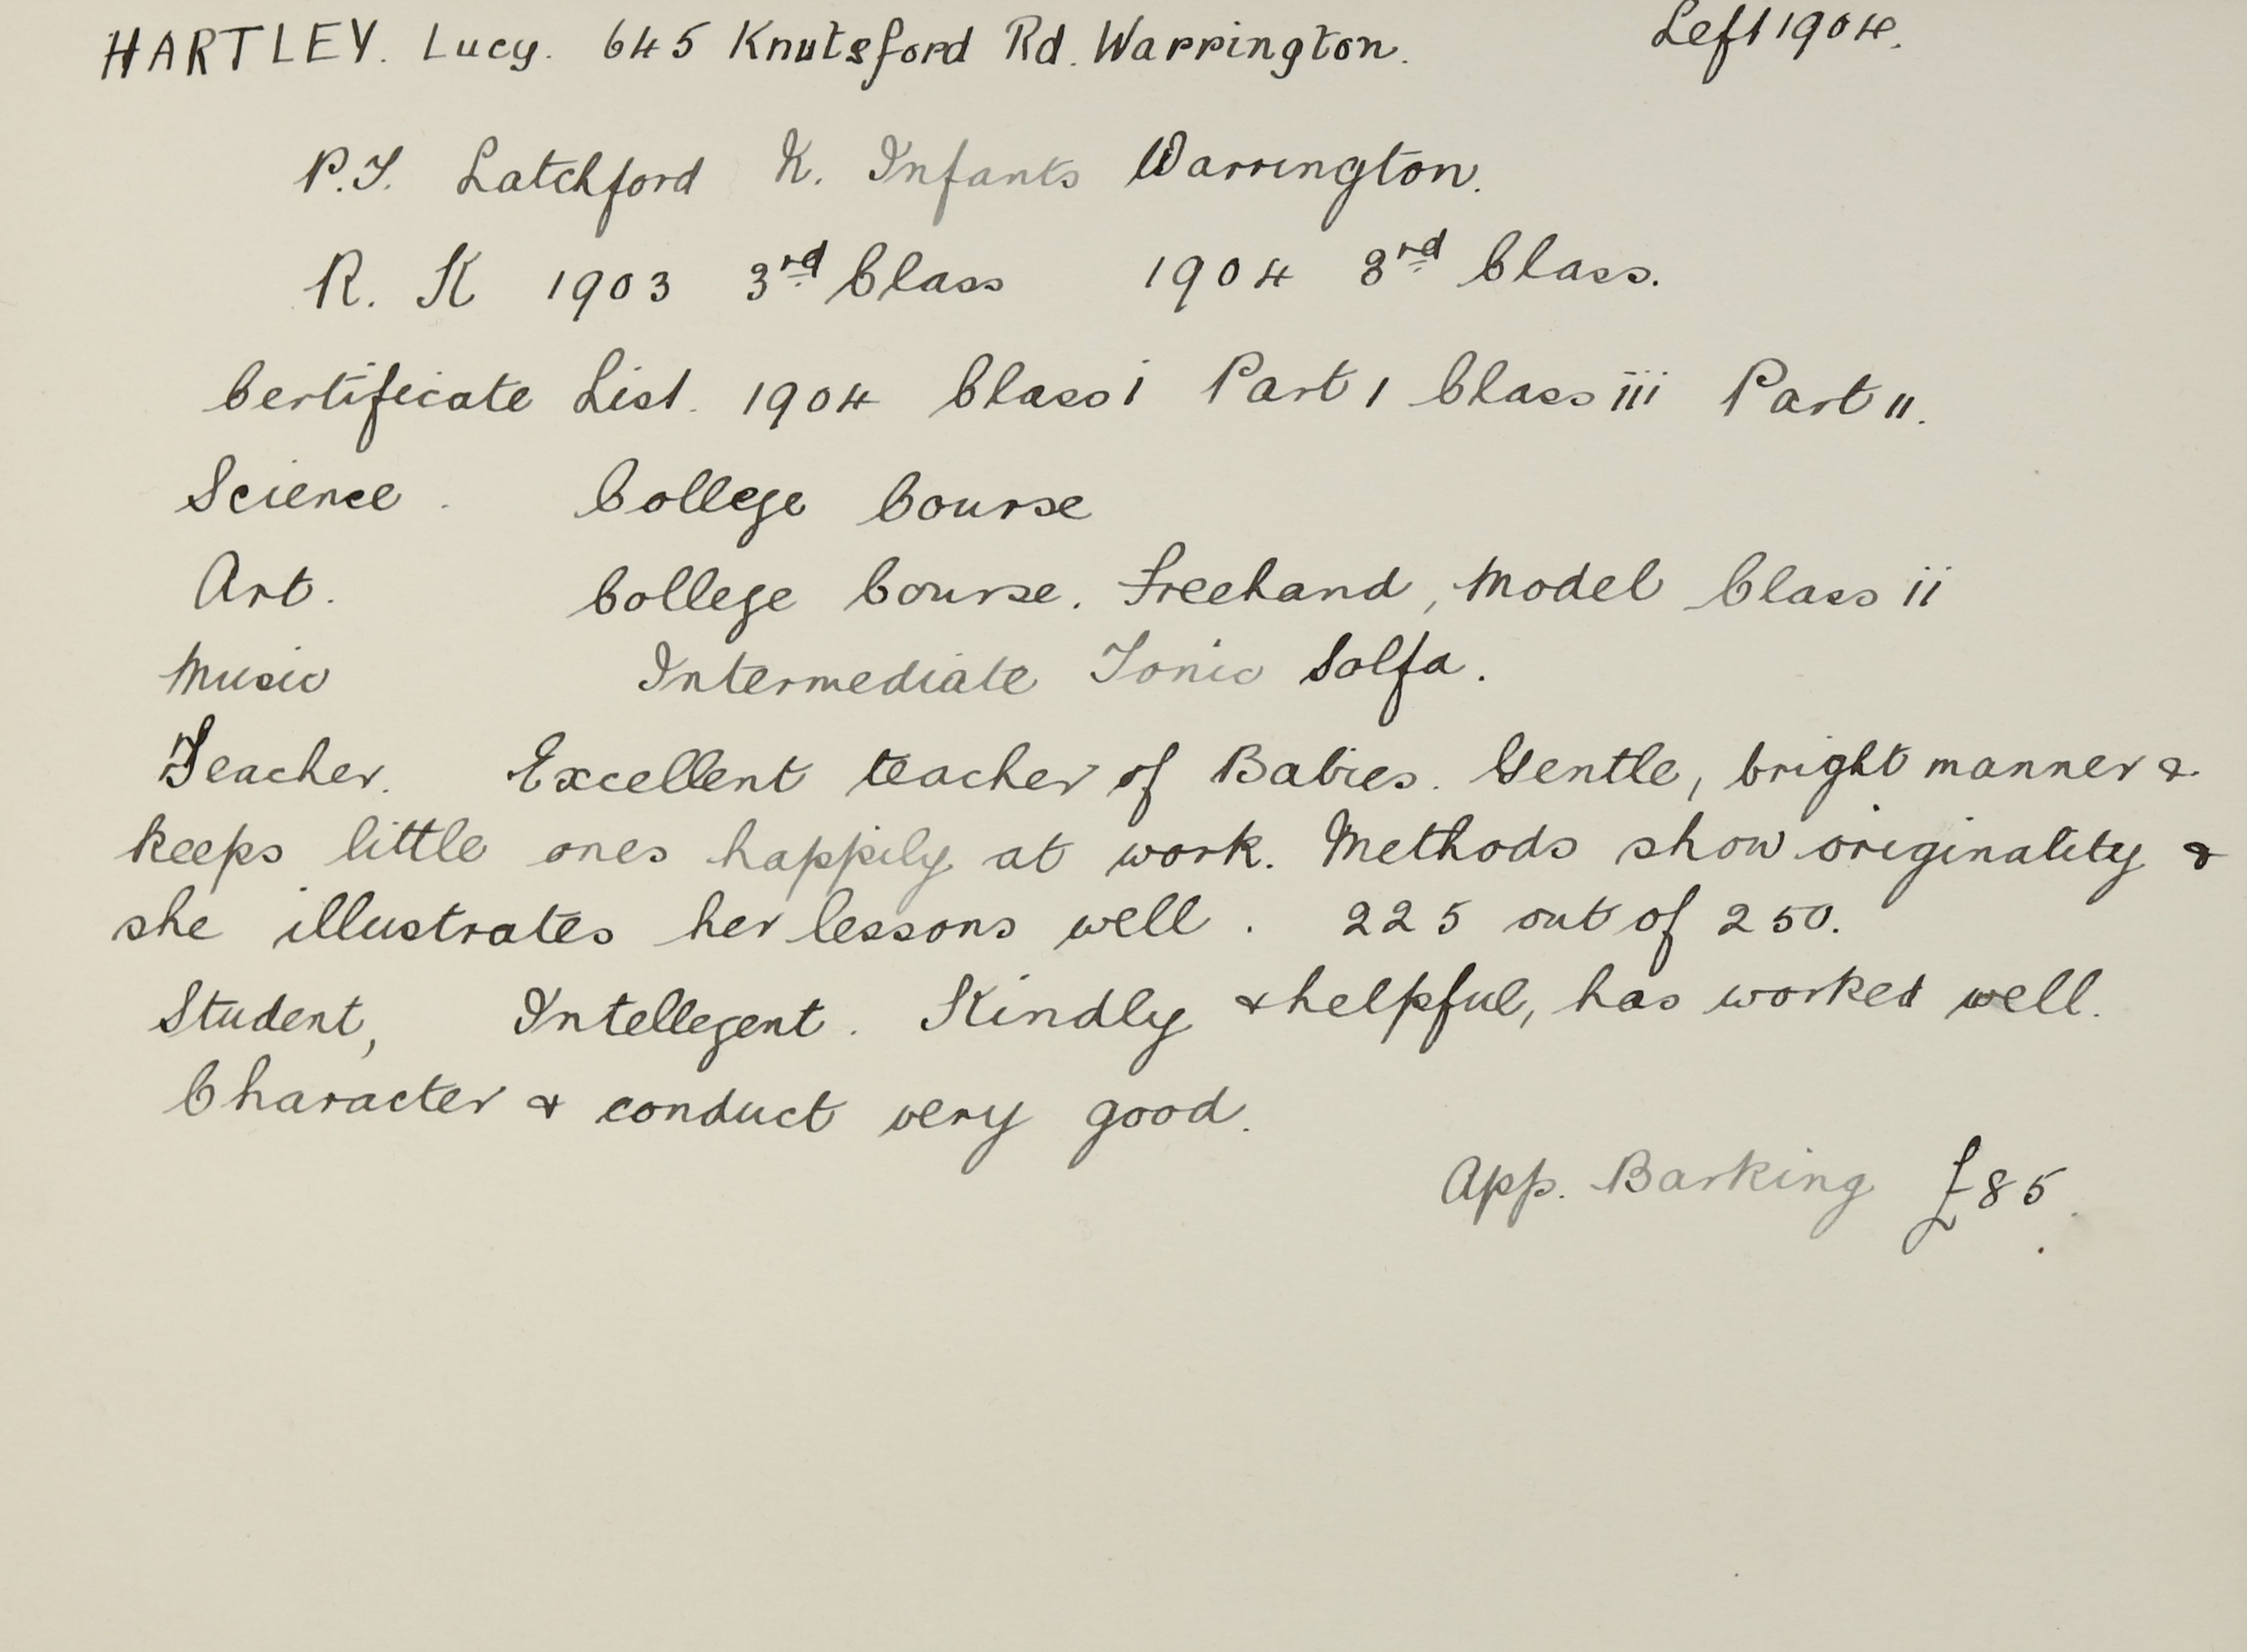 HARTLEY. Lucy. 645 Knutsford Rd. Warrington. Left 1904.
P.T. Latchford N. Infants Warrington.
R. K 1903 3rd Class 1904 3rd Class.
Certificate List. 1904 Class i Part 1 Class iii Part 11.
Science . College Course
Art. College Course. Freehand, Model Class ii
Music Intermediate Tonic Solfa.
Teacher. Excellent teacher of Babies. Gentle, bright manner &
keeps little ones happily at work. Methods show originality &
she illustrates her lessons well. 225 out of 250.
Student, Intellegent. Kindly & helpful, has worked well.
Character & conduct very good.
App. Barking £85.